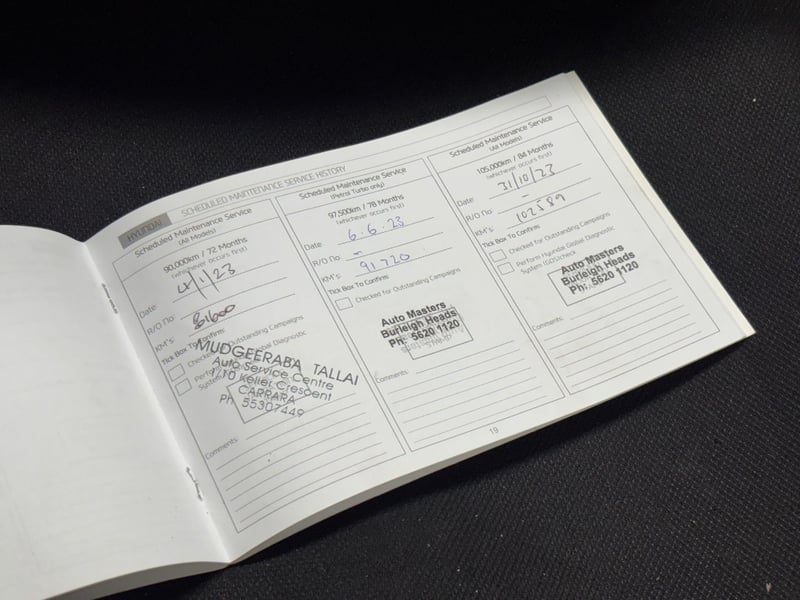 HYUNDAI SCHEDULED MAINTENANCE SERVICE HISTORY
Scheduled Maintenance Service
(All Models)
90,000km / 72 Months
(whichever occurs first)
Date 4/1/23
R/O No:
KM's: 81600
Tick Box To Confirm:
Checked for Outstanding Campaigns
Perform Hyundai Global Diagnostic
System
MUDGEERABA TALLAI
Auto Service Centre
/10 Keller Crescent
CARRARA
Ph 55307449
Comments:
Scheduled Maintenance Service
(Petrol Turbo only)
97,500km / 78 Months
(whichever occurs first)
Date 6.6.23
R/O No: –
KM's: 91720
Tick Box To Confirm:
Checked for Outstanding Campaigns
Auto Masters
Burleigh Heads
Ph: 5620 1120
Comments:
19
Scheduled Maintenance Service
(All Models)
105,000km / 84 Months
(whichever occurs first)
Date 31/10/23
R/O No: –
KM's: 102589
Tick Box To Confirm:
Checked for Outstanding Campaigns
Perform Hyundai Global Diagnostic
System (GDS)check
Auto Masters
Burleigh Heads
Ph: 5620 1120
Comments: